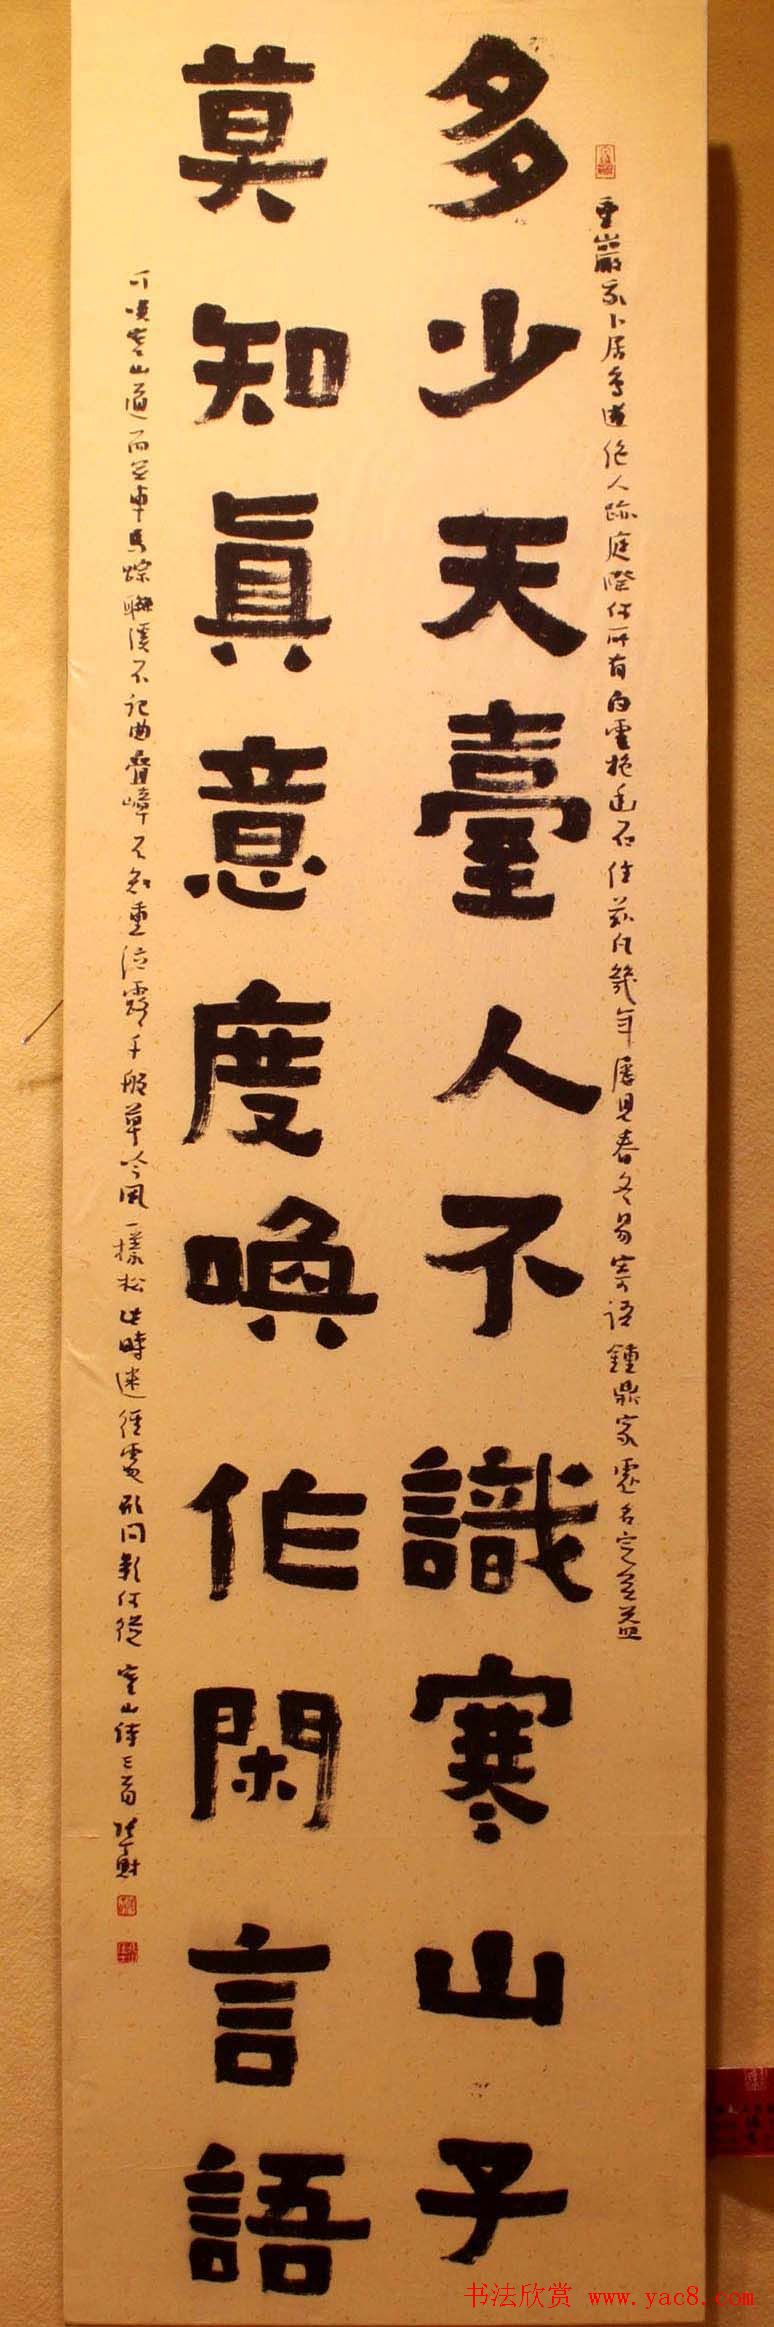 重巖我卜居鳥道絕人跡庭際何所有白雲抱幽石住茲凡幾年屢見春冬易寄語鍾鼎家虛名定無益
多少天臺人不識寒山子
莫知真意度喚作閑言語
可笑寒山道而無車馬蹤聯溪不記曲疊嶂不知重泣露千般草吟風一樣松此時迷徑處形問影何從 寒山詩三首
书法欣赏 www.yac8.com